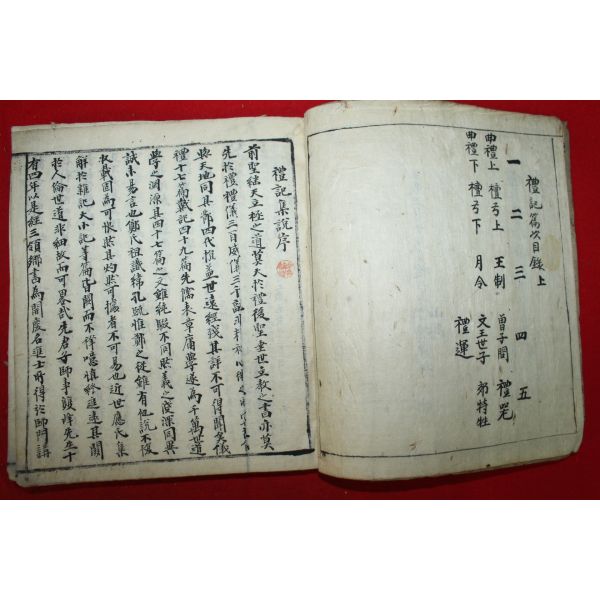 禮記篇次目錄上
一 二 三 四 五
曲禮上 檀弓上 王制 曾子問 禮器
曲禮下 檀弓下 月令 文王世子 郊特牲
禮運
禮記集說序
前聖継天立極之道莫大於禮後聖垂世立教之書亦莫
先於禮禮儀三百威儀三千
與天地同其節四代損益世遠經殘其詳不可得聞矣儀
禮十七篇戴記四十九篇先儒表章庸學遂為千萬世道
學之淵源其四十七篇之文雖純駁不同然義之淺深同異
誠未易言也鄭氏祖讖緯孔疏惟鄭之從雖有他說不復
收載固為可恨然其灼然可據者不可易也近世應氏集
解於雜記大小記等篇皆闕而不釋噫慎終追遠其關
於人倫世道非細故而可畧哉先君子師事雙峯先生十
有四年以是經三領鄉書為開慶名進士所得於師門講